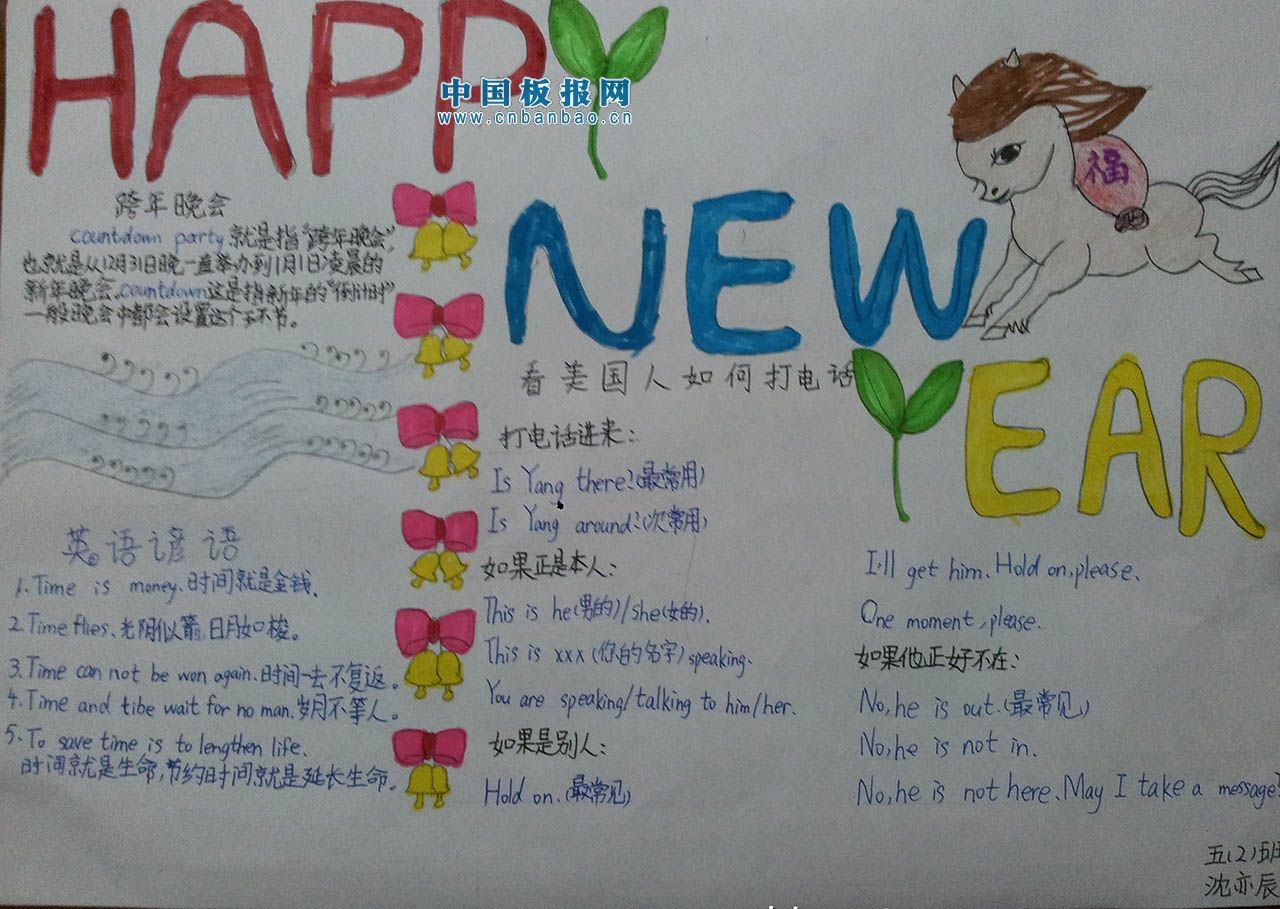 HAPPY
中国板报网
www.cnbanbao.cn
NEW
YEAR
福
跨年晚会
countdown party 就是指“跨年晚会”,
也就是从12月31日晚一直举办到1月1日凌晨的
新年晚会。countdown这是指新年的“倒计时”
一般晚会中都会设置这个子不节。
英语谚语
1.Time is money、时间就是金钱.
2.Time flies、光阴似箭,日月如梭。
3.Time can not be won again、时间一去不复返。
4.Time and tibe wait for no man、岁月不等人。
5.To save time is to lengthen life、
时间就是生命,节约时间就是延长生命。
看美国人如何打电话
打电话进来:
Is Yang there?(最常用)
Is Yang around?(次常用)
如果正是本人:
This is he(男的)/she(女的).
This is xxx(你的名字)speaking.
You are speaking/talking to him/her.
如果是别人:
Hold on.(最常见)
I'll get him、Hold on,please.
One moment,please.
如果他正好不在:
No,he is out.(最常见)
No,he is not in.
No,he is not here、May I take a message?
五(2)班
沈亦辰